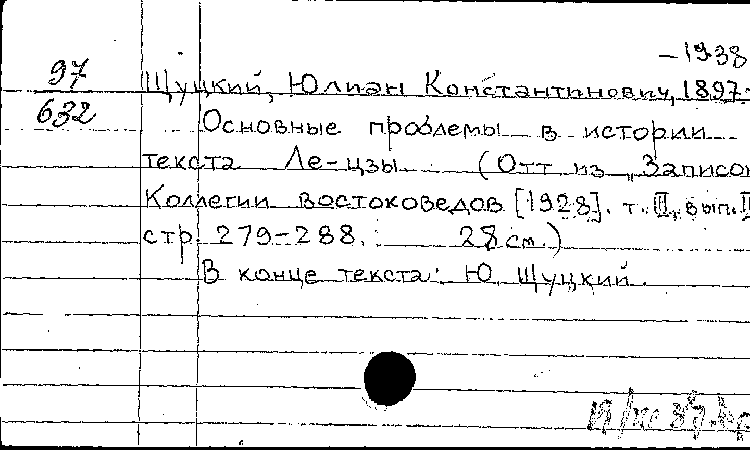 -1938
97 Щуцкий, Юлиан Константинович, 1897-
632 Основные проблемы в истории
текста Ле-цзы. (Отт из „Записок
Коллегии востоковедов [1928]. т. II, вып.
стр. 279-288. 28 см.)
В конце текста: Ю. Щуцкий.